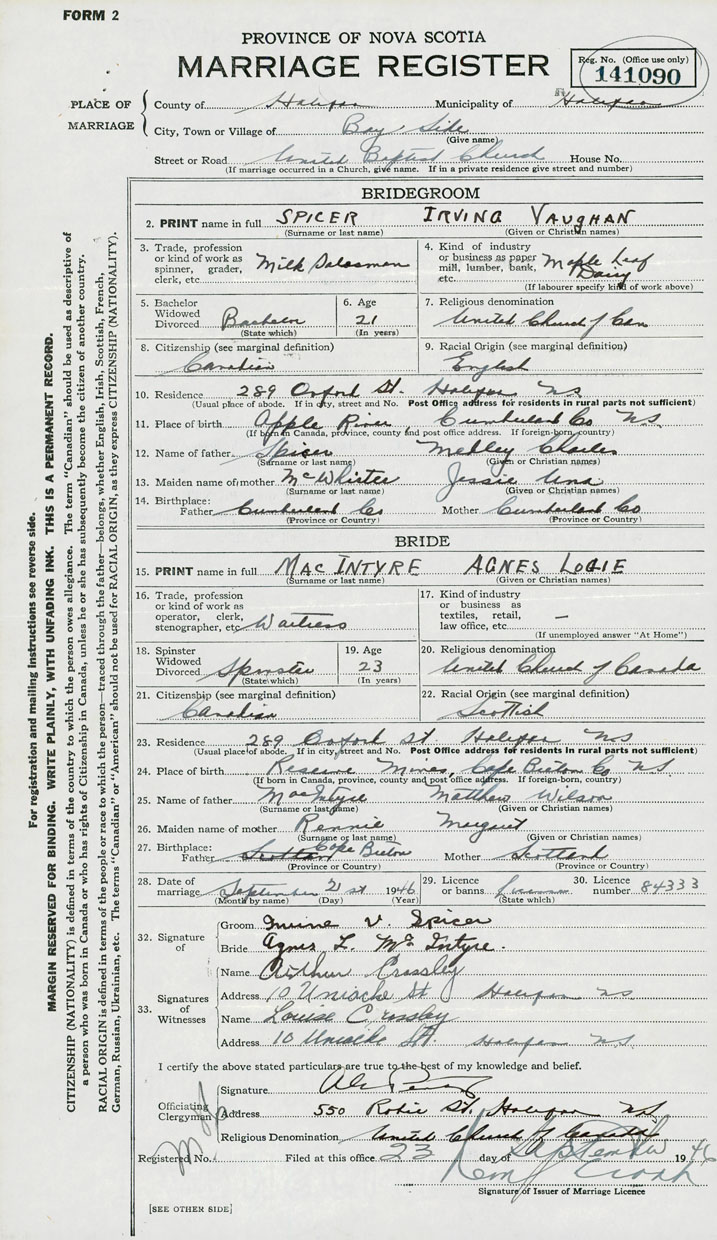 FORM 2
PROVINCE OF NOVA SCOTIA
MARRIAGE REGISTER
Reg. No. (Office use only)
141090
PLACE OF MARRIAGE
County of Halifax Municipality of Halifax
City, Town or Village of Bay Side
(Give name)
Street or Road United Baptist Church House No.
(If marriage occurred in a Church, give name. If in a private residence give street and number)
BRIDEGROOM
2. PRINT name in full SPICER IRVING VAUGHAN
(Surname or last name) (Given or Christian names)
3. Trade, profession or kind of work as spinner, grader, clerk, etc. Milk Salesman
4. Kind of industry or business as paper mill, lumber, bank, etc. Maple Leaf Dairy
(If labourer specify kind of work above)
5. Bachelor Widowed Divorced Bachelor
(State which)
6. Age 21
(In years)
7. Religious denomination
United Church of Can
8. Citizenship (see marginal definition)
Canadian
9. Racial Origin (see marginal definition)
English
10. Residence 289 Oxford St. Halifax NS
(Usual place of abode. If in city, street and No. Post Office address for residents in rural parts not sufficient)
11. Place of birth Apple River, Cumberland Co N.S.
(If born in Canada, province, county and post office address. If foreign-born, country)
12. Name of father Spicer Medley Charles
(Surname or last name) (Given or Christian names)
13. Maiden name of mother McWhirter Jessie Una
(Surname or last name) (Given or Christian names)
14. Birthplace: Father Cumberland Co Mother Cumberland Co
(Province or Country) (Province or Country)
BRIDE
15. PRINT name in full MAC INTYRE AGNES LOGIE
(Surname or last name) (Given or Christian names)
16. Trade, profession or kind of work as operator, clerk, stenographer, etc. Waitress
17. Kind of industry or business as textiles, retail, law office, etc. —
(If unemployed answer "At Home")
18. Spinster Widowed Divorced Spinster
(State which)
19. Age 23
(In years)
20. Religious denomination
United Church of Canada
21. Citizenship (see marginal definition)
Canadian
22. Racial Origin (see marginal definition)
Scottish
23. Residence 289 Oxford St. Halifax NS
(Usual place of abode. If in city, street and No. Post Office address for residents in rural parts not sufficient)
24. Place of birth Reserve Mines, Cape Breton Co N.S.
(If born in Canada, province, county and post office address. If foreign-born, country)
25. Name of father MacIntyre Matthew Wilson
(Surname or last name) (Given or Christian names)
26. Maiden name of mother Rennie Margaret
(Surname or last name) (Given or Christian names)
27. Birthplace: Father Scotland Cape Breton Mother Scotland
(Province or Country) (Province or Country)
28. Date of marriage September 21st 1946
(Month by name) (Day) (Year)
29. Licence or banns
(State which)
30. Licence number 84333
32. Signature of
Groom Irvine V Spicer
Bride Agnes L. McIntyre.
33. Signatures of Witnesses
Name Arthur Crossley
Address 10 Uniacke St Halifax NS
Name Louise Crossley
Address 10 Uniacke St. Halifax N.S.
I certify the above stated particulars are true to the best of my knowledge and belief.
Officiating Clergyman
Signature
Address 550 Robie St. Halifax NS
Religious Denomination United Church of Canada
Registered No. Filed at this office 23 day of September 1946
Signature of Issuer of Marriage Licence
[SEE OTHER SIDE]
For registration and mailing instructions see reverse side.
MARGIN RESERVED FOR BINDING. WRITE PLAINLY, WITH UNFADING INK. THIS IS A PERMANENT RECORD.
CITIZENSHIP (NATIONALITY) is defined in terms of the country to which the person owes allegiance. The term "Canadian" should be used as descriptive of
a person who was born in Canada or who has rights of Citizenship in Canada, unless he or she has subsequently become the citizen of another country.
RACIAL ORIGIN is defined in terms of the people or race to which the person—traced through the father—belongs, whether English, Irish, Scottish, French,
German, Russian, Ukrainian, etc. The terms "Canadian" or "American" should not be used for RACIAL ORIGIN, as they express CITIZENSHIP (NATIONALITY).